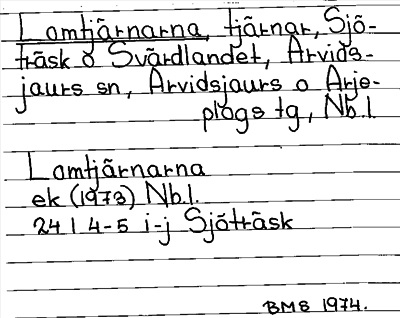 Lomtjärnarna, tjärnar, Sjö-
träsk o Svärdlandet, Arvids-
jaurs sn, Arvidsjaurs o Arje-
plogs tg, Nb.l.
Lomtjärnarna
ek (1973) Nb.l.
24 I 4-5 i-j Sjöträsk
BMS 1974.